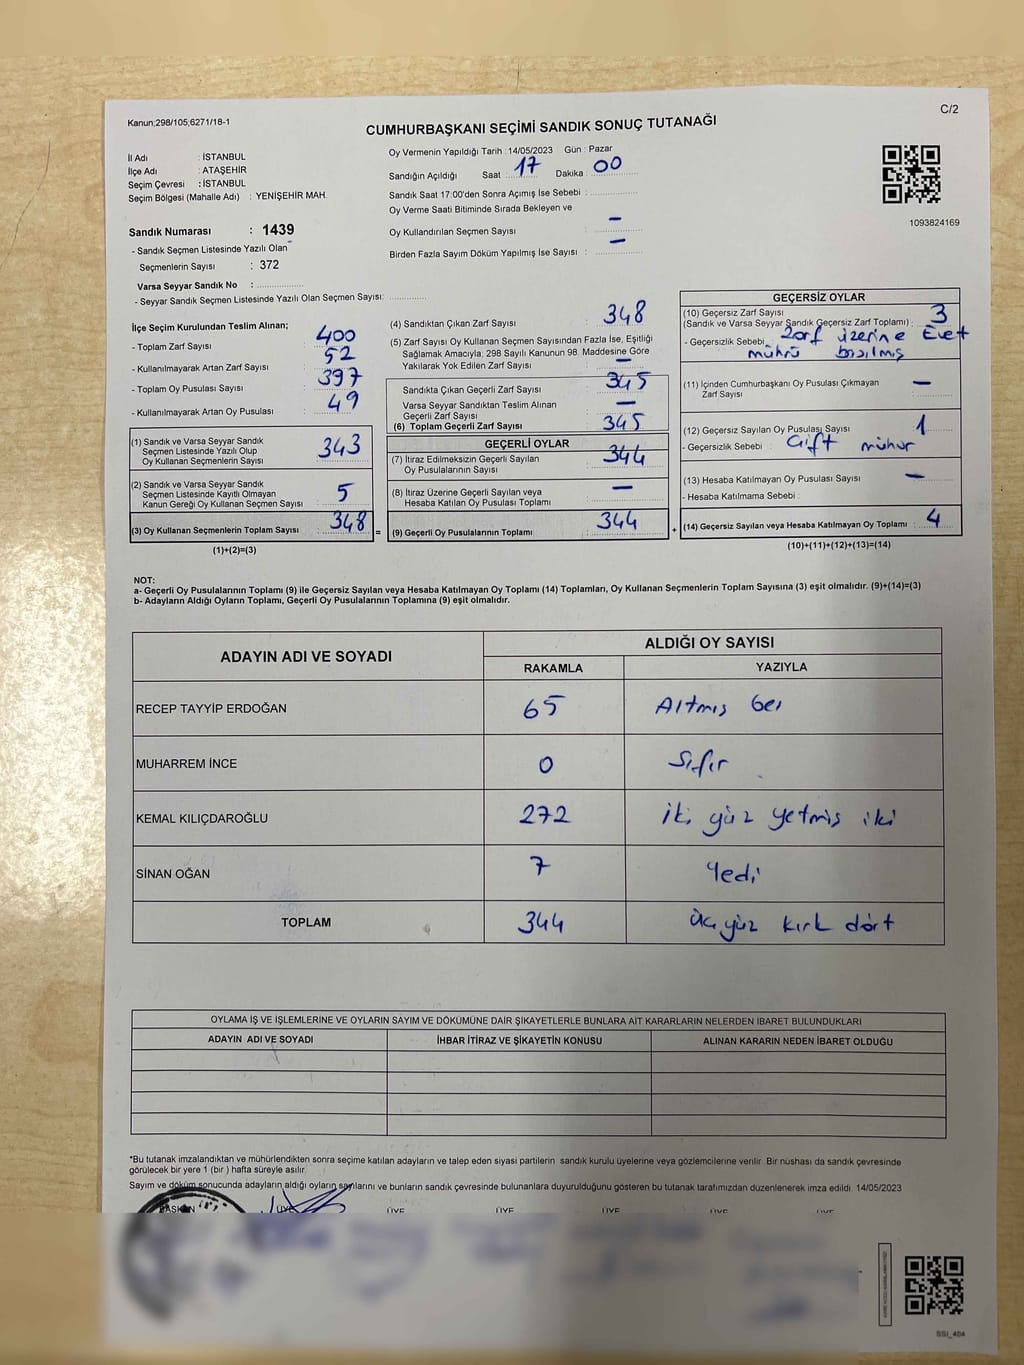 Kanun;298/105;6271/18-1
C/2
CUMHURBAŞKANI SEÇİMİ SANDIK SONUÇ TUTANAĞI
İl Adı : İSTANBUL
İlçe Adı : ATAŞEHİR
Seçim Çevresi : İSTANBUL
Seçim Bölgesi (Mahalle Adı) : YENİŞEHİR MAH.
Sandık Numarası : 1439
- Sandık Seçmen Listesinde Yazılı Olan
Seçmenlerin Sayısı : 372
Varsa Seyyar Sandık No :
- Seyyar Sandık Seçmen Listesinde Yazılı Olan Seçmen Sayısı:
Oy Vermenin Yapıldığı Tarih : 14/05/2023 Gün : Pazar
Sandığın Açıldığı Saat : 17 Dakika : 00
Sandık Saat 17:00'den Sonra Açımış İse Sebebi :
Oy Verme Saati Bitiminde Sırada Bekleyen ve
Oy Kullandırılan Seçmen Sayısı : –
Birden Fazla Sayım Döküm Yapılmış İse Sayısı : –
1093824169
İlçe Seçim Kurulundan Teslim Alınan;
- Toplam Zarf Sayısı : 400
- Kullanılmayarak Artan Zarf Sayısı : 52
- Toplam Oy Pusulası Sayısı : 397
- Kullanılmayarak Artan Oy Pusulası : 49
(1) Sandık ve Varsa Seyyar Sandık
Seçmen Listesinde Yazılı Olup
Oy Kullanan Seçmenlerin Sayısı : 343
(2) Sandık ve Varsa Seyyar Sandık
Seçmen Listesinde Kayıtlı Olmayan
Kanun Gereği Oy Kullanan Seçmen Sayısı : 5
(3) Oy Kullanan Seçmenlerin Toplam Sayısı : 348
(1)+(2)=(3)
(4) Sandıktan Çıkan Zarf Sayısı : 348
(5) Zarf Sayısı Oy Kullanan Seçmen Sayısından Fazla İse, Eşitliği
Sağlamak Amacıyla, 298 Sayılı Kanunun 98. Maddesine Göre
Yakılarak Yok Edilen Zarf Sayısı : –
Sandıkta Çıkan Geçerli Zarf Sayısı : 345
Varsa Seyyar Sandıktan Teslim Alınan
Geçerli Zarf Sayısı : –
(6) Toplam Geçerli Zarf Sayısı : 345
GEÇERLİ OYLAR
(7) İtiraz Edilmeksizin Geçerli Sayılan
Oy Pusulalarının Sayısı : 344
(8) İtiraz Üzerine Geçerli Sayılan veya
Hesaba Katılan Oy Pusulası Toplamı : –
= (9) Geçerli Oy Pusulalarının Toplamı : 344
GEÇERSİZ OYLAR
(10) Geçersiz Zarf Sayısı
(Sandık ve Varsa Seyyar Sandık Geçersiz Zarf Toplamı) : 3
- Geçersizlik Sebebi : Zarf üzerine Evet
mührü basılmış
(11) İçinden Cumhurbaşkanı Oy Pusulası Çıkmayan
Zarf Sayısı : –
(12) Geçersiz Sayılan Oy Pusulası Sayısı : 1
- Geçersizlik Sebebi : Çift mühür
(13) Hesaba Katılmayan Oy Pusulası Sayısı : –
- Hesaba Katılmama Sebebi :
+ (14) Geçersiz Sayılan veya Hesaba Katılmayan Oy Toplamı : 4
(10)+(11)+(12)+(13)=(14)
NOT:
a- Geçerli Oy Pusulalarının Toplamı (9) ile Geçersiz Sayılan veya Hesaba Katılmayan Oy Toplamı (14) Toplamları, Oy Kullanan Seçmenlerin Toplam Sayısına (3) eşit olmalıdır. (9)+(14)=(3)
b- Adayların Aldığı Oyların Toplamı, Geçerli Oy Pusulalarının Toplamına (9) eşit olmalıdır.
ADAYIN ADI VE SOYADI
ALDIĞI OY SAYISI
RAKAMLA YAZIYLA
RECEP TAYYİP ERDOĞAN 65 Altmış beş
MUHARREM İNCE 0 Sıfır
KEMAL KILIÇDAROĞLU 272 iki yüz yetmiş iki
SİNAN OĞAN 7 Yedi
TOPLAM 344 üç yüz kırk dört
OYLAMA İŞ VE İŞLEMLERİNE VE OYLARIN SAYIM VE DÖKÜMÜNE DAİR ŞİKAYETLERLE BUNLARA AİT KARARLARIN NELERDEN İBARET BULUNDUKLARI
ADAYIN ADI VE SOYADI İHBAR İTİRAZ VE ŞİKAYETİN KONUSU ALINAN KARARIN NEDEN İBARET OLDUĞU
*Bu tutanak imzalandıktan ve mühürlendikten sonra seçime katılan adayların ve talep eden siyasi partilerin sandık kurulu üyelerine veya gözlemcilerine verilir. Bir nüshası da sandık çevresinde
görülecek bir yere 1 (bir ) hafta süreyle asılır.
Sayım ve döküm sonucunda adayların aldığı oyların sayılarını ve bunların sandık çevresinde bulunanlara duyurulduğunu gösteren bu tutanak tarafımızdan düzenlenerek imza edildi. 14/05/2023
BAŞKAN ÜYE ÜYE ÜYE ÜYE ÜYE ÜYE